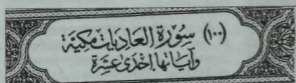 (١٠٠) سُورَةُ العَادِيَاتِ مَكِّيَّة
وَآيَاتُهَا إِحْدَى عَشَرَة